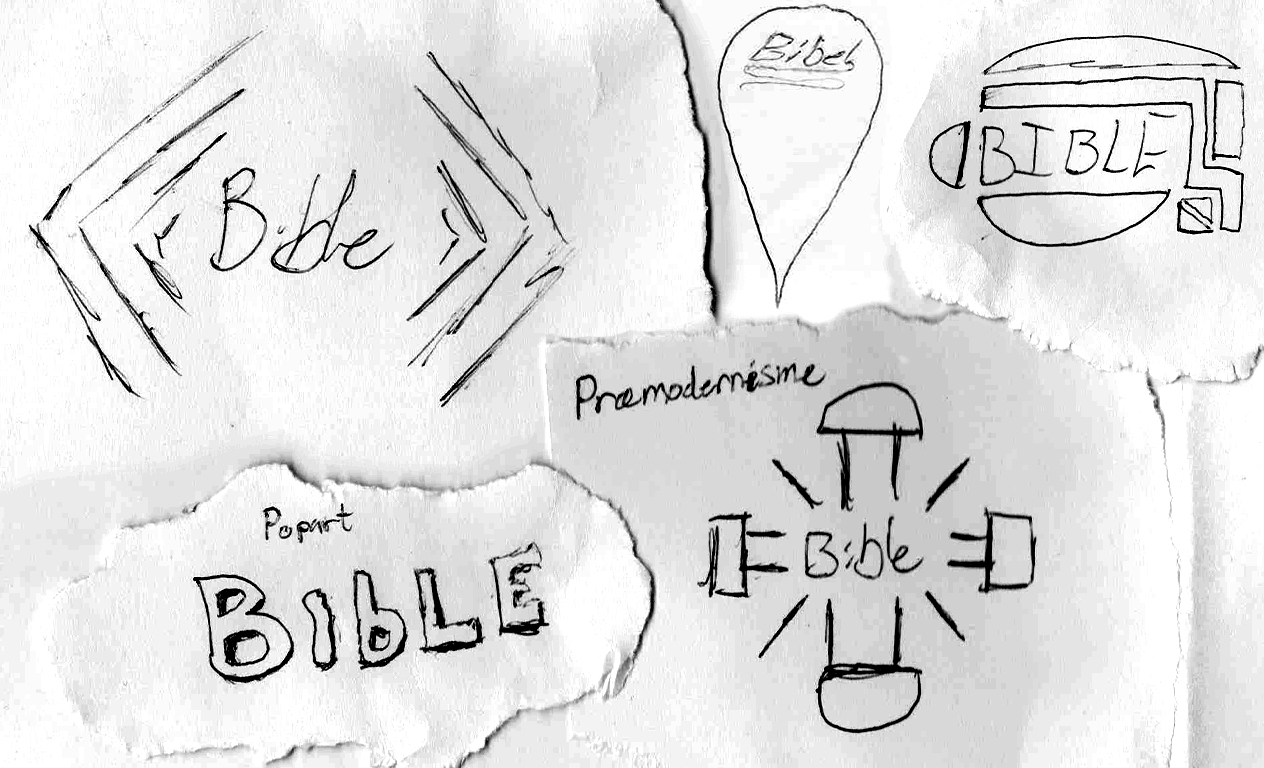 Bible
Bibel
BIBLE
Præmodernisme
Bible
Popart
BIbLE